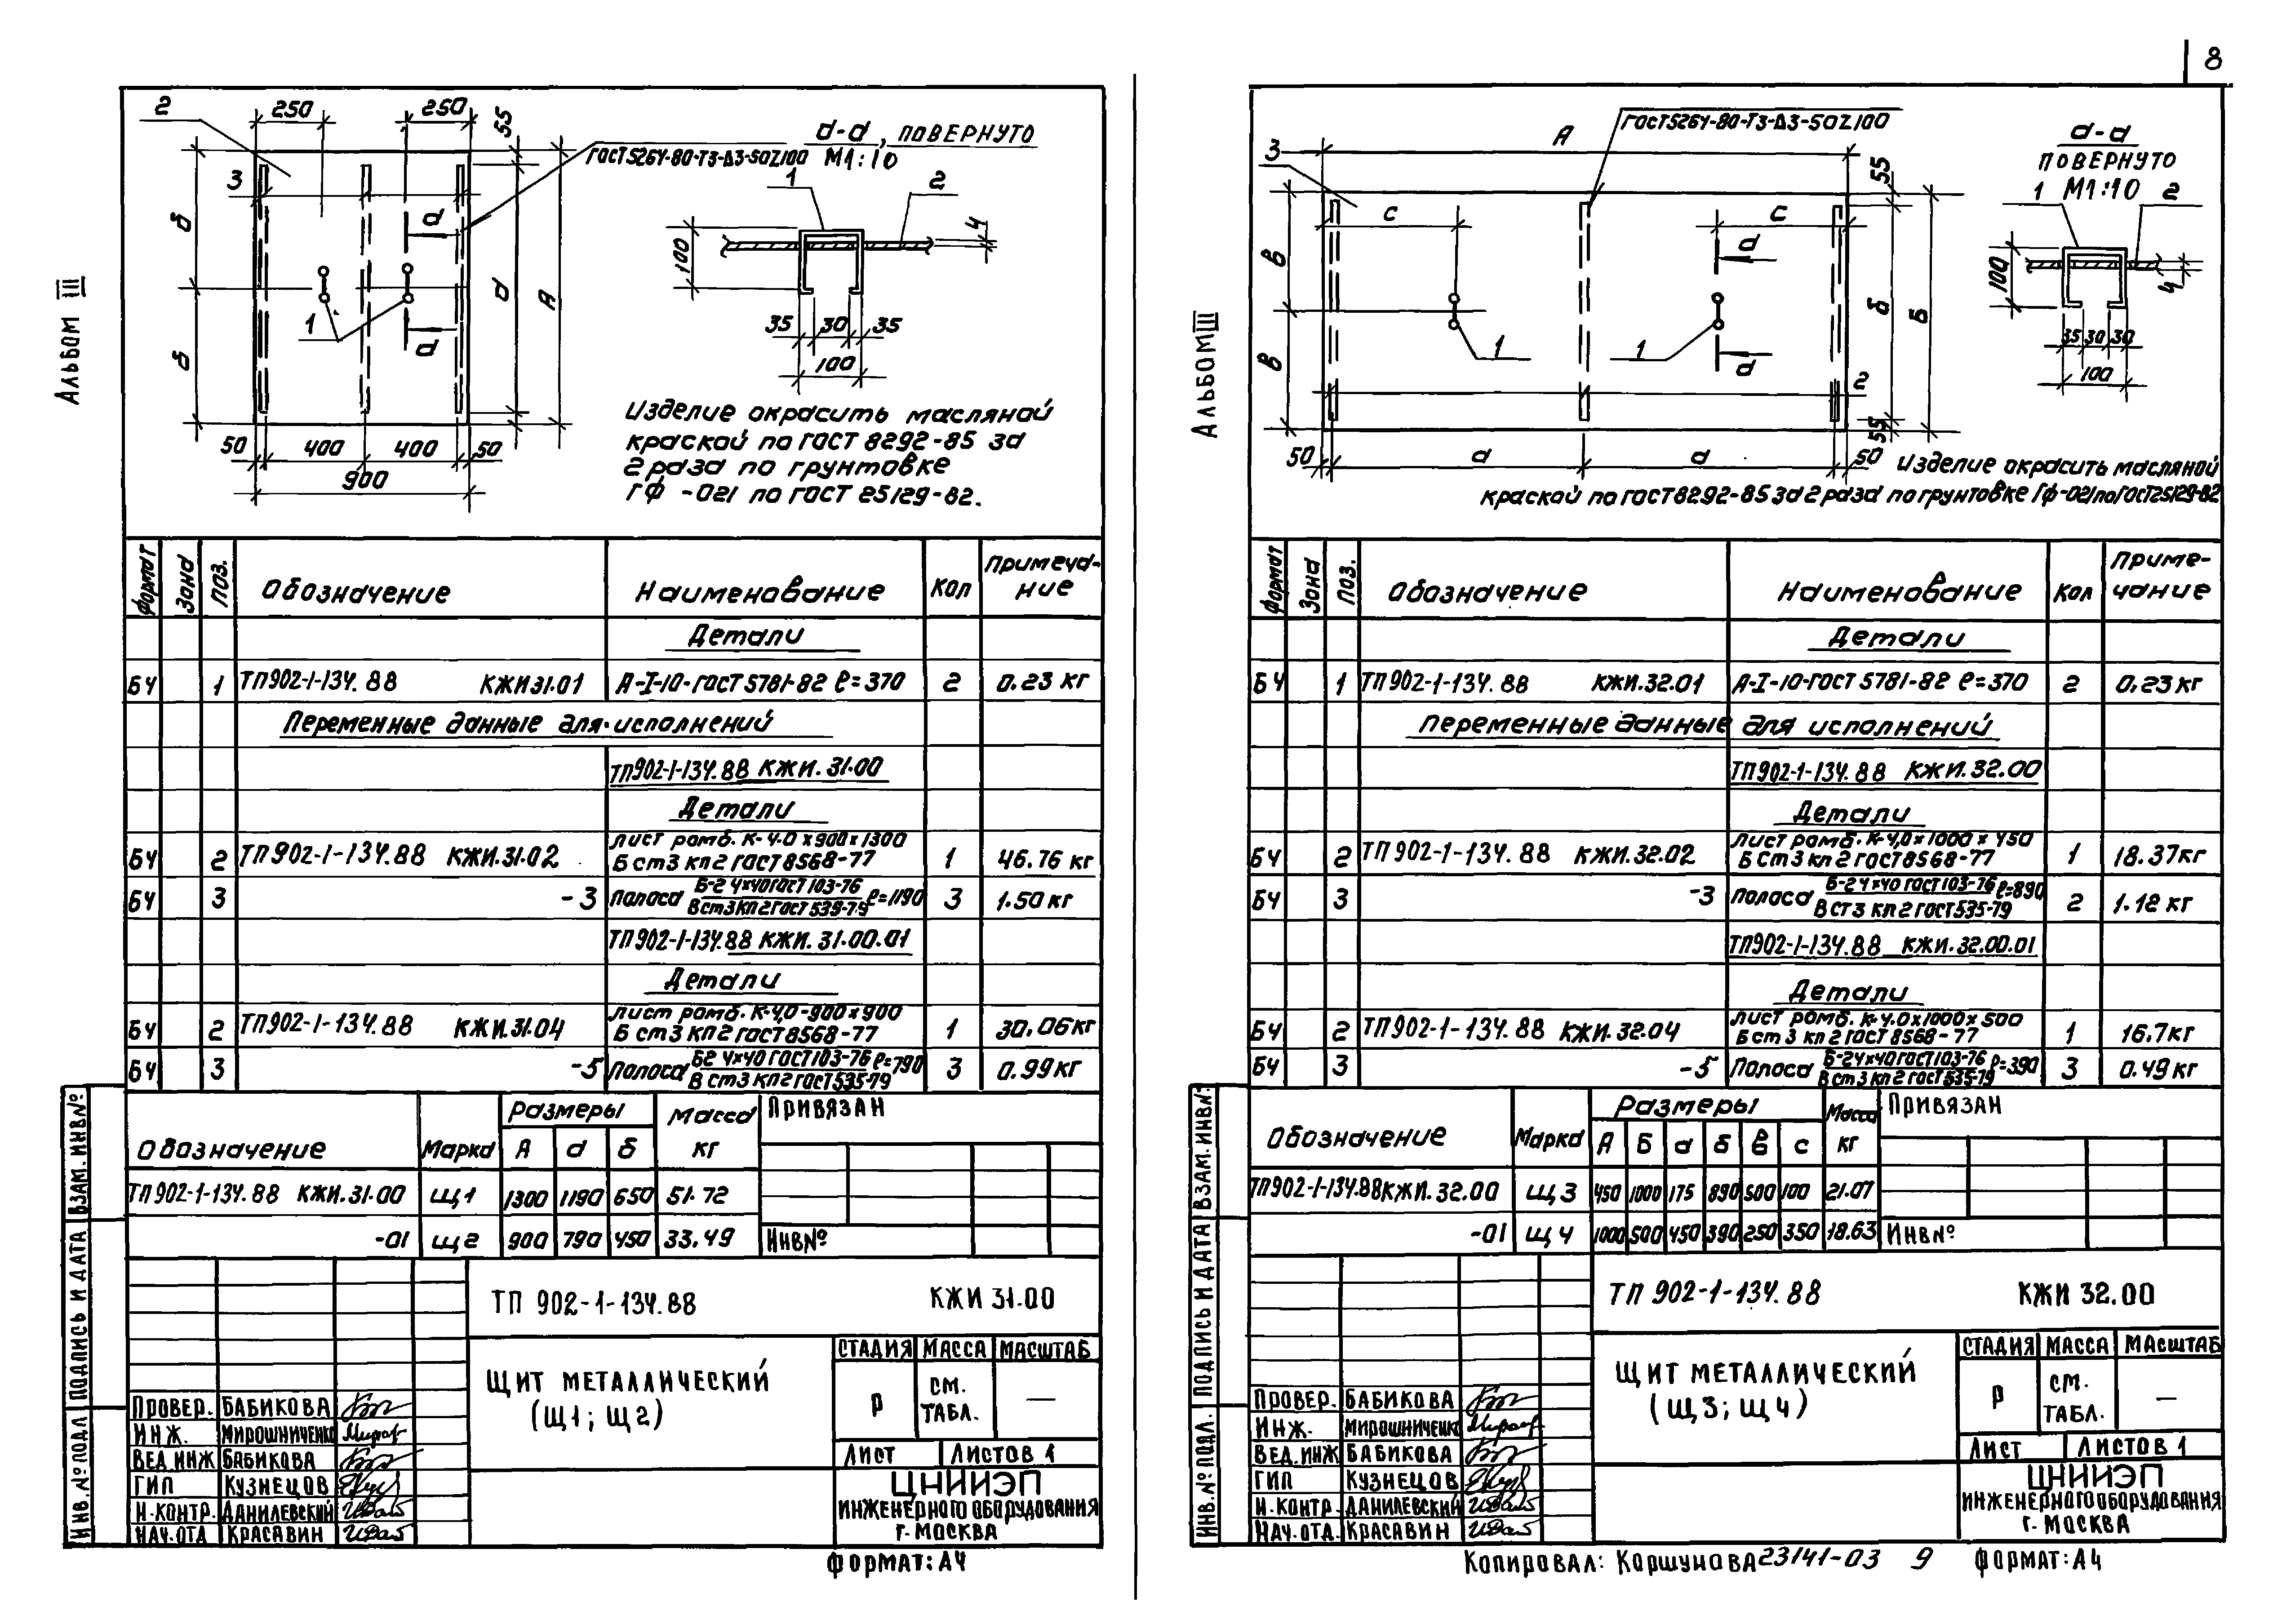 8
Альбом III
2
250
250
55
3
б
б
1
а
а
а
А
50
400
400
50
900
ГОСТ5264-80-Т3-Δ3-50Z100
а-а, повернуто
М1:10
1
2
4
100
35
30
35
100
Изделие окрасить масляной
краской по ГОСТ 8292-85 за
2 раза по грунтовке
ГФ-021 по ГОСТ 25129-82.
Формат Зона Поз. Обозначение Наименование Кол Примеча-
ние
Детали
БЧ 1 ТП902-1-134.88 КЖИ31.01 А-I-10-ГОСТ 5781-82 ℓ=370 2 0.23 кг
Переменные данные для исполнений
ТП902-1-134.88 КЖИ.31.00
Детали
БЧ 2 ТП902-1-134.88 КЖИ.31.02 Лист ромб. К-4.0х900х1300
Бст3 кп2 ГОСТ8568-77 1 46.76 кг
БЧ 3 -3 Полоса Б-2 4х40 ГОСТ103-76
Вст3кп2ГОСТ535-79 ℓ=1190 3 1.50 кг
ТП902-1-134.88 КЖИ.31.00.01
Детали
БЧ 2 ТП902-1-134.88 КЖИ.31.04 Лист ромб. К-4,0-900х900
Бст3 кп2 ГОСТ8568-77 1 30.06кг
БЧ 3 -5 Полоса Б2 4х40 ГОСТ103-76
Вст3 кп2 ГОСТ535-79 ℓ=790 3 0.99 кг
Обозначение Марка Размеры Масса
кг
А а б
ТП902-1-134.88 КЖИ.31.00 Щ1 1300 1190 650 51.72
-01 Щ2 900 790 450 33.49
Привязан
Инв№
ТП 902-1-134.88 КЖИ 31.00
Щит металлический
(Щ1; Щ2)
Стадия Масса Масштаб
Р См.
табл. —
Лист Листов 1
ЦНИИЭП
инженерного оборудования
г. Москва
Провер. Бабикова
Инж. Мирошниченко
Вед.инж Бабикова
ГИП Кузнецов
Н.контр. Данилевский
Нач.отд Красавин
Инв.№ подл Подпись и дата Взам.инв№
Формат:А4
Альбом III
3
А
ГОСТ5264-80-Т3-Δ3-50Z100
55
с
с
в
в
а
а
1
1
2
б
Б
55
50
а
а
50
а-а
повернуто
М1:10
1
2
100
4
35
30
30
100
Изделие окрасить масляной
краской по ГОСТ8292-85 за 2 раза по грунтовке ГФ-021 по ГОСТ25129-82
Формат Зона Поз. Обозначение Наименование Кол Приме-
чание
Детали
БЧ 1 ТП902-1-134.88 КЖИ.32.01 А-I-10-ГОСТ 5781-82 ℓ=370 2 0.23 кг
Переменные данные для исполнений
ТП902-1-134.88 КЖИ.32.00
Детали
БЧ 2 ТП902-1-134.88 КЖИ.32.02 Лист ромб. К-4,0х1000 х 450
Б Ст3 кп2 ГОСТ8568-77 1 18.37кг
БЧ 3 -3 Полоса Б-2 4х40 ГОСТ103-76
ВСт3 кп2 ГОСТ535-79 ℓ=890 2 1.12 кг
ТП902-1-134.88 КЖИ.32.00.01
Детали
БЧ 2 ТП902-1-134.88 КЖИ.32.04 Лист ромб. К-4.0х1000х500
Бст3 кп2 ГОСТ8568-77 1 16.7кг
БЧ 3 -5 Полоса Б-24х40ГОСТ103-76
Вст3 кп2 ГОСТ535-79 ℓ=390 3 0.49 кг
Обозначение Марка Размеры Масса
кг
А Б а б в с
ТП902-1-134.88КЖИ.32.00 Щ3 450 1000 175 890 500 100 21.07
-01 Щ4 1000 500 450 390 250 350 18.63
Привязан
Инв№
ТП 902-1-134.88 КЖИ 32.00
Щит металлический
(Щ3; Щ4)
Стадия Масса Масштаб
Р См.
табл. —
Лист Листов 1
ЦНИИЭП
инженерного оборудования
г. Москва
Провер. Бабикова
Инж. Мирошниченко
Вед.инж Бабикова
ГИП Кузнецов
Н.контр. Данилевский
Нач.отд. Красавин
Инв.№ подл. Подпись и дата Взам.инв№
Копировал: Коршунова 23141-03 9 Формат:А4